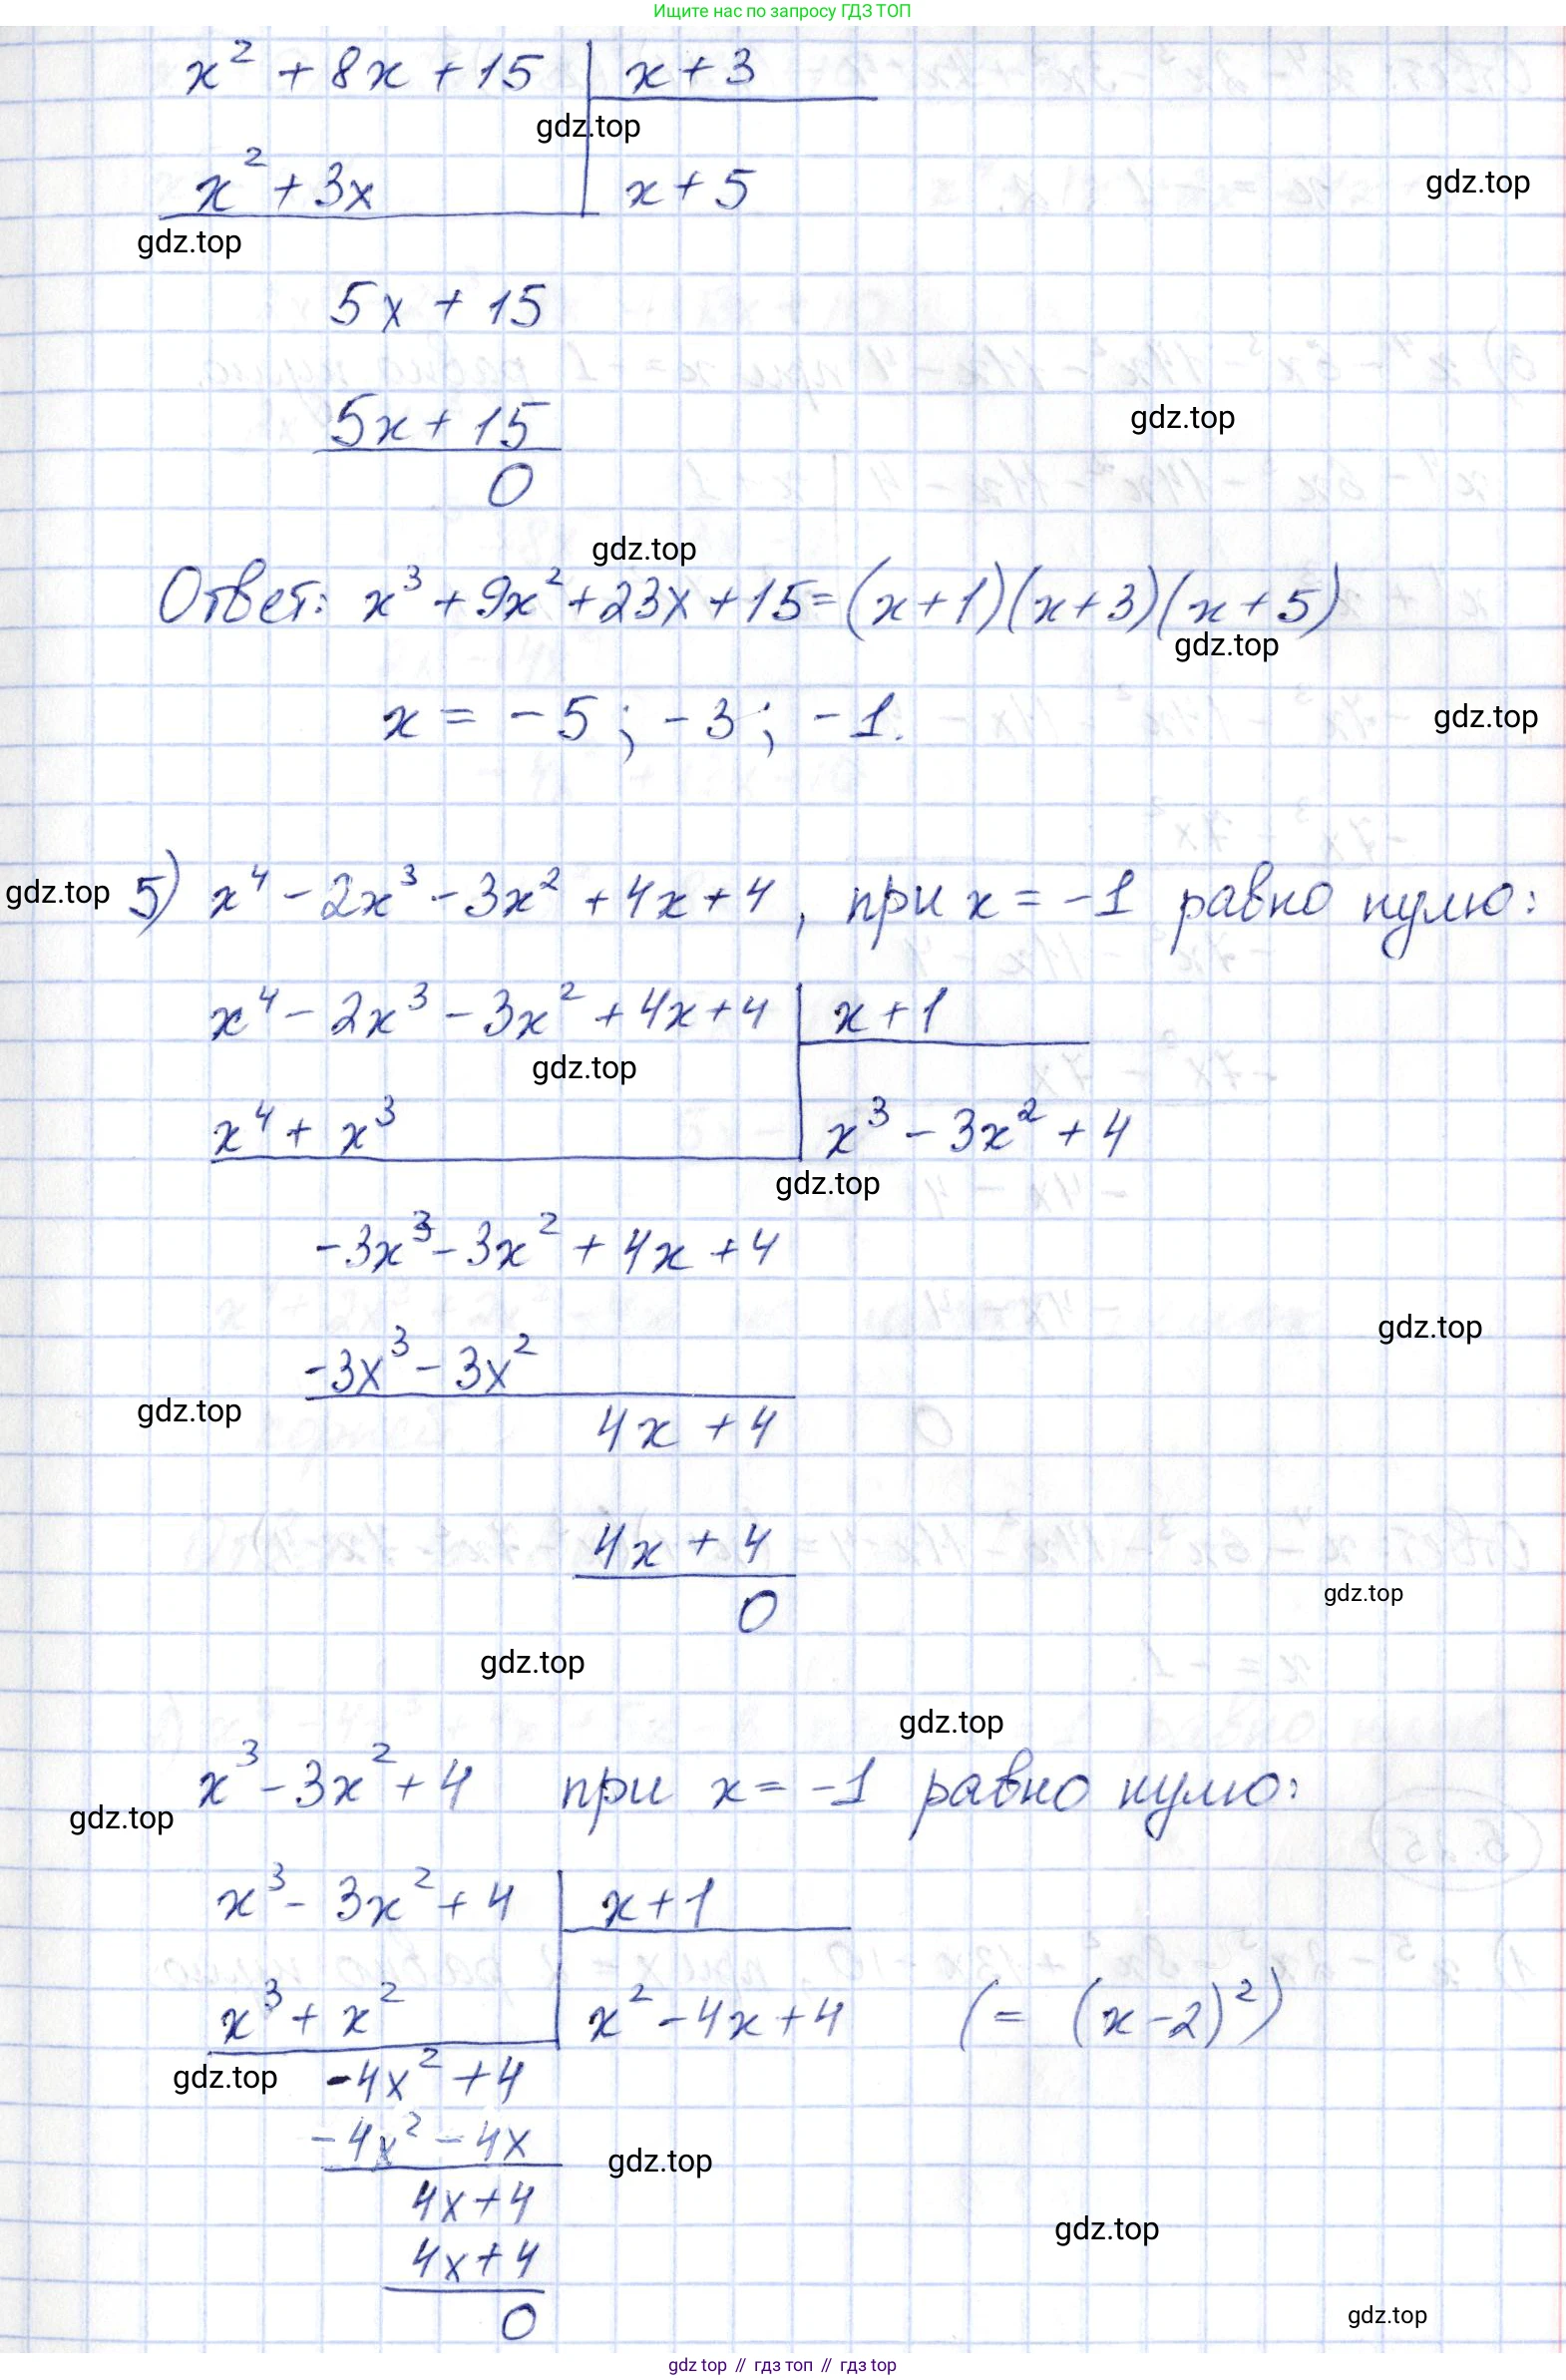 Ищите нас по запросу ГДЗ ТОП
x² + 8x + 15 | x + 3
gdz.top
x² + 3x | x + 5
gdz.top
gdz.top
5x + 15
5x + 15
gdz.top
0
gdz.top
Ответ: x³ + 9x² + 23x + 15 = (x+1)(x+3)(x+5)
gdz.top
x = -5; -3; -1.
gdz.top
gdz.top 5) x⁴ - 2x³ - 3x² + 4x + 4, при x = -1 равно нулю:
x⁴ - 2x³ - 3x² + 4x + 4 | x + 1
gdz.top
x⁴ + x³ | x³ - 3x² + 4
gdz.top
-3x³ - 3x² + 4x + 4
gdz.top
-3x³ - 3x²
gdz.top
4x + 4
4x + 4
gdz.top
0
gdz.top
gdz.top
x³ - 3x² + 4 при x = -1 равно нулю:
gdz.top
x³ - 3x² + 4 | x + 1
x³ + x² | x² - 4x + 4 (= (x-2)²)
gdz.top
-4x² + 4
-4x² - 4x
gdz.top
4x + 4
gdz.top
4x + 4
0
gdz.top
gdz top // гдз топ // гдз top